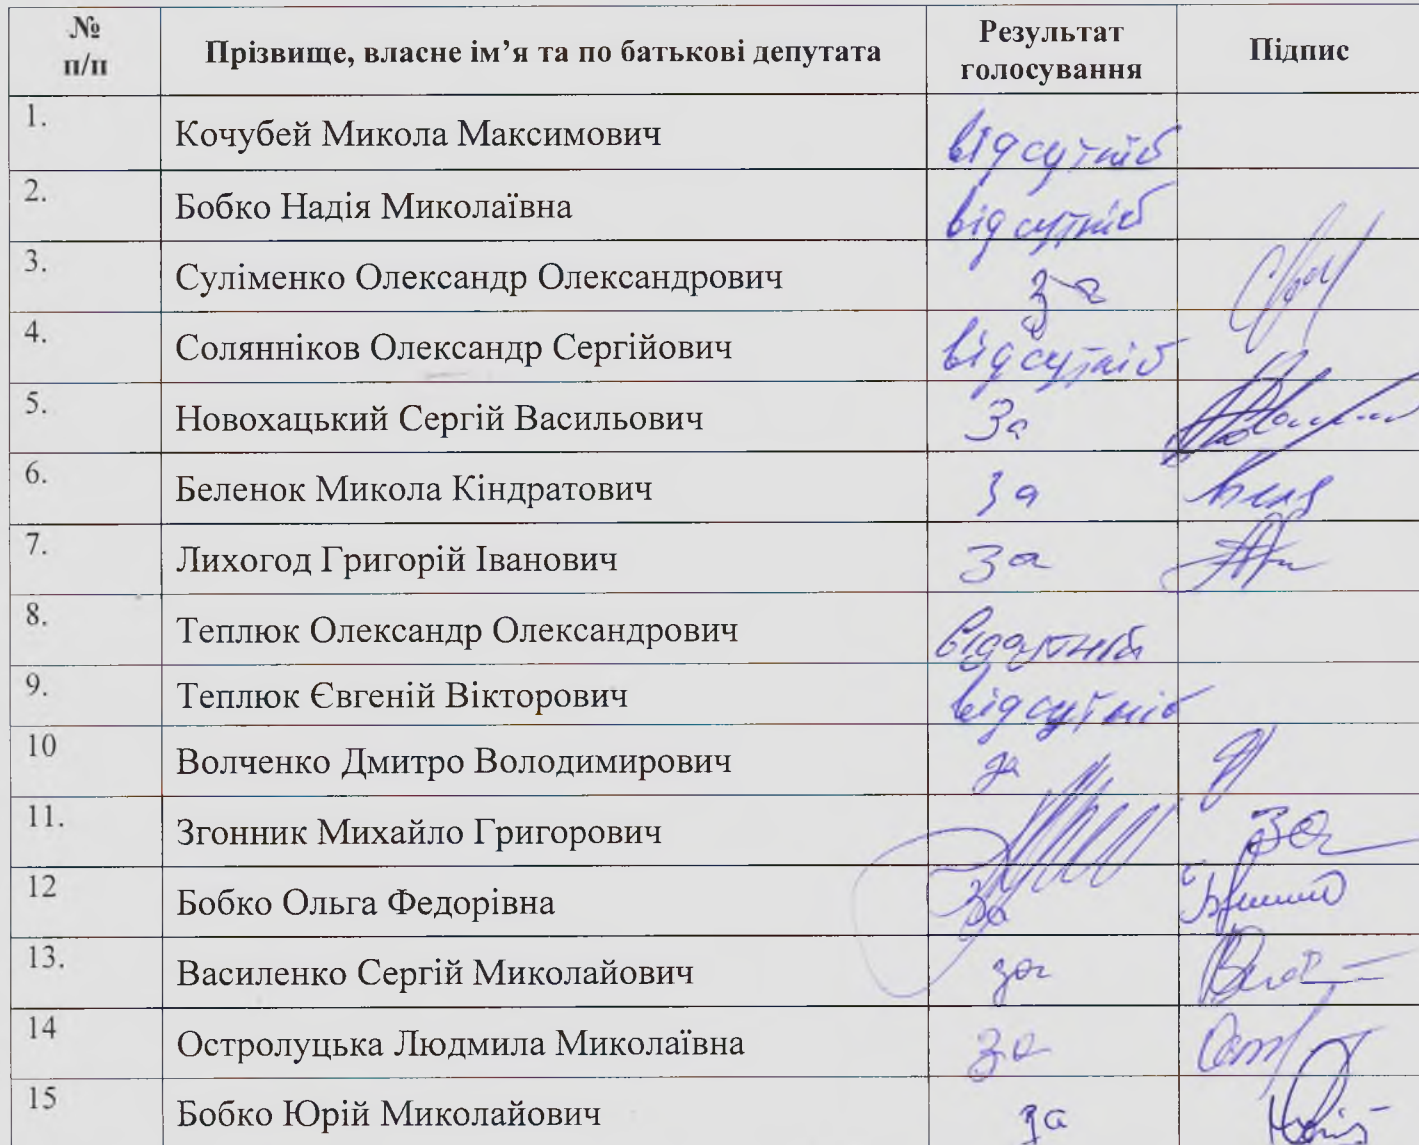 № п/п Прізвище, власне ім’я та по батькові депутата Результат голосування Підпис
1. Кочубей Микола Максимович відсутній
2. Бобко Надія Миколаївна відсутній
3. Суліменко Олександр Олександрович за
4. Солянніков Олександр Сергійович відсутній
5. Новохацький Сергій Васильович За
6. Беленок Микола Кіндратович За
7. Лихогод Григорій Іванович За
8. Теплюк Олександр Олександрович відсутній
9. Теплюк Євгеній Вікторович відсутній
10 Волченко Дмитро Володимирович за
11. Згонник Михайло Григорович За
12 Бобко Ольга Федорівна За
13. Василенко Сергій Миколайович за
14 Остролуцька Людмила Миколаївна за
15 Бобко Юрій Миколайович за